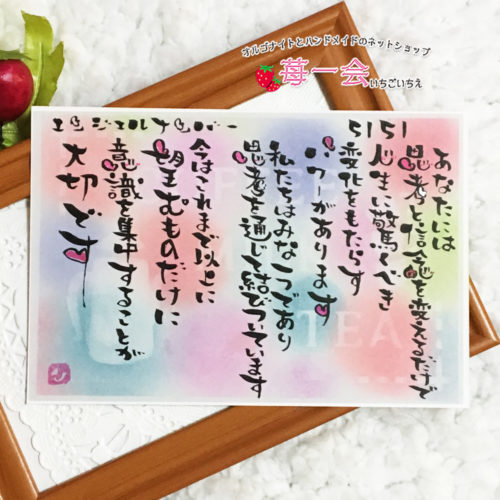 オルゴナイトとハンドメイドのネットショップ
苺一会 いちごいちえ
エンジェルナンバー 5151
あなたには
思考と信念を変えるだけで
人生に驚くべき
変化をもたらす
パワーがあります
私たちはみな一つであり
思考を通じて結びついています
今はこれまで以上に
望むものだけに
意識を集中することが
大切です
TEA